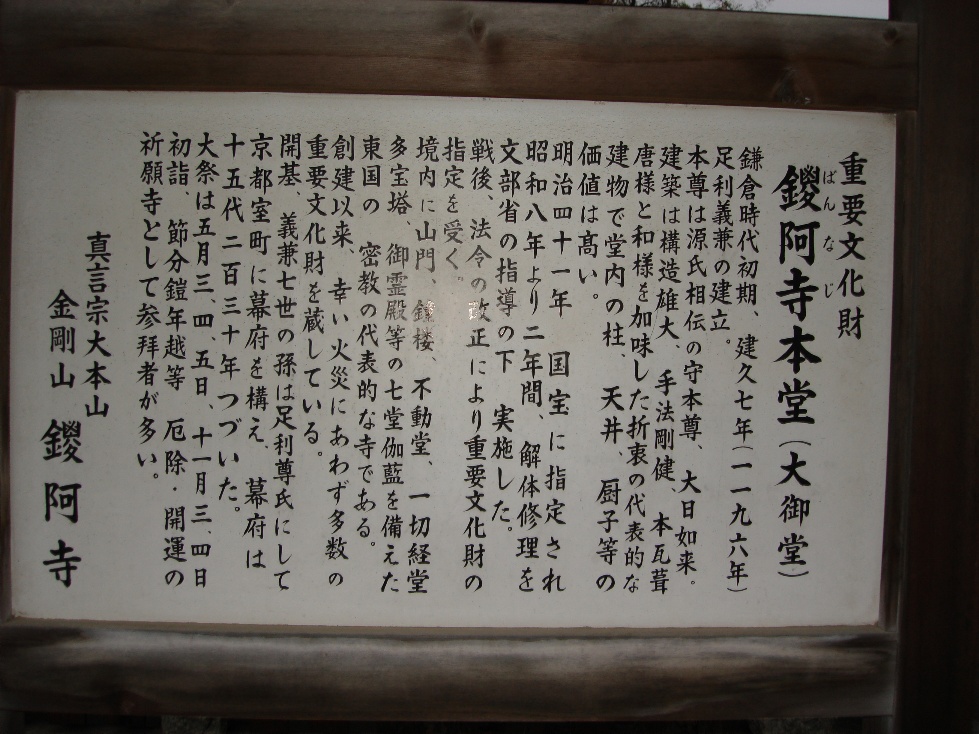 重要文化財
鑁阿寺本堂（大御堂）
ばんなじ
鎌倉時代初期、建久七年（一一九六年）
足利義兼の建立。
本尊は源氏相伝の守本尊、大日如来。
建築は構造雄大、手法剛健、本瓦葺
唐様と和様を加味した折衷の代表的な
建物で堂内の柱、天井、厨子等の
価値は高い。
明治四十一年 国宝に指定され
昭和八年より二年間、解体修理を
文部省の指導の下 実施した。
戦後、法令の改正により重要文化財の
指定を受く。
境内に山門、鐘楼、不動堂、一切経堂
多宝塔、御霊殿等の七堂伽藍を備えた
東国の 密教の代表的な寺である。
創建以来、幸い火災にあわず多数の
重要文化財を蔵している。
開基、義兼七世の孫は足利尊氏にして
京都室町に幕府を構え、幕府は
十五代二百三十年つづいた。
大祭は五月三、四、五日、十一月三、四日
初詣、節分鎧年越等 厄除・開運の
祈願寺として参拝者が多い。
真言宗大本山
金剛山 鑁阿寺